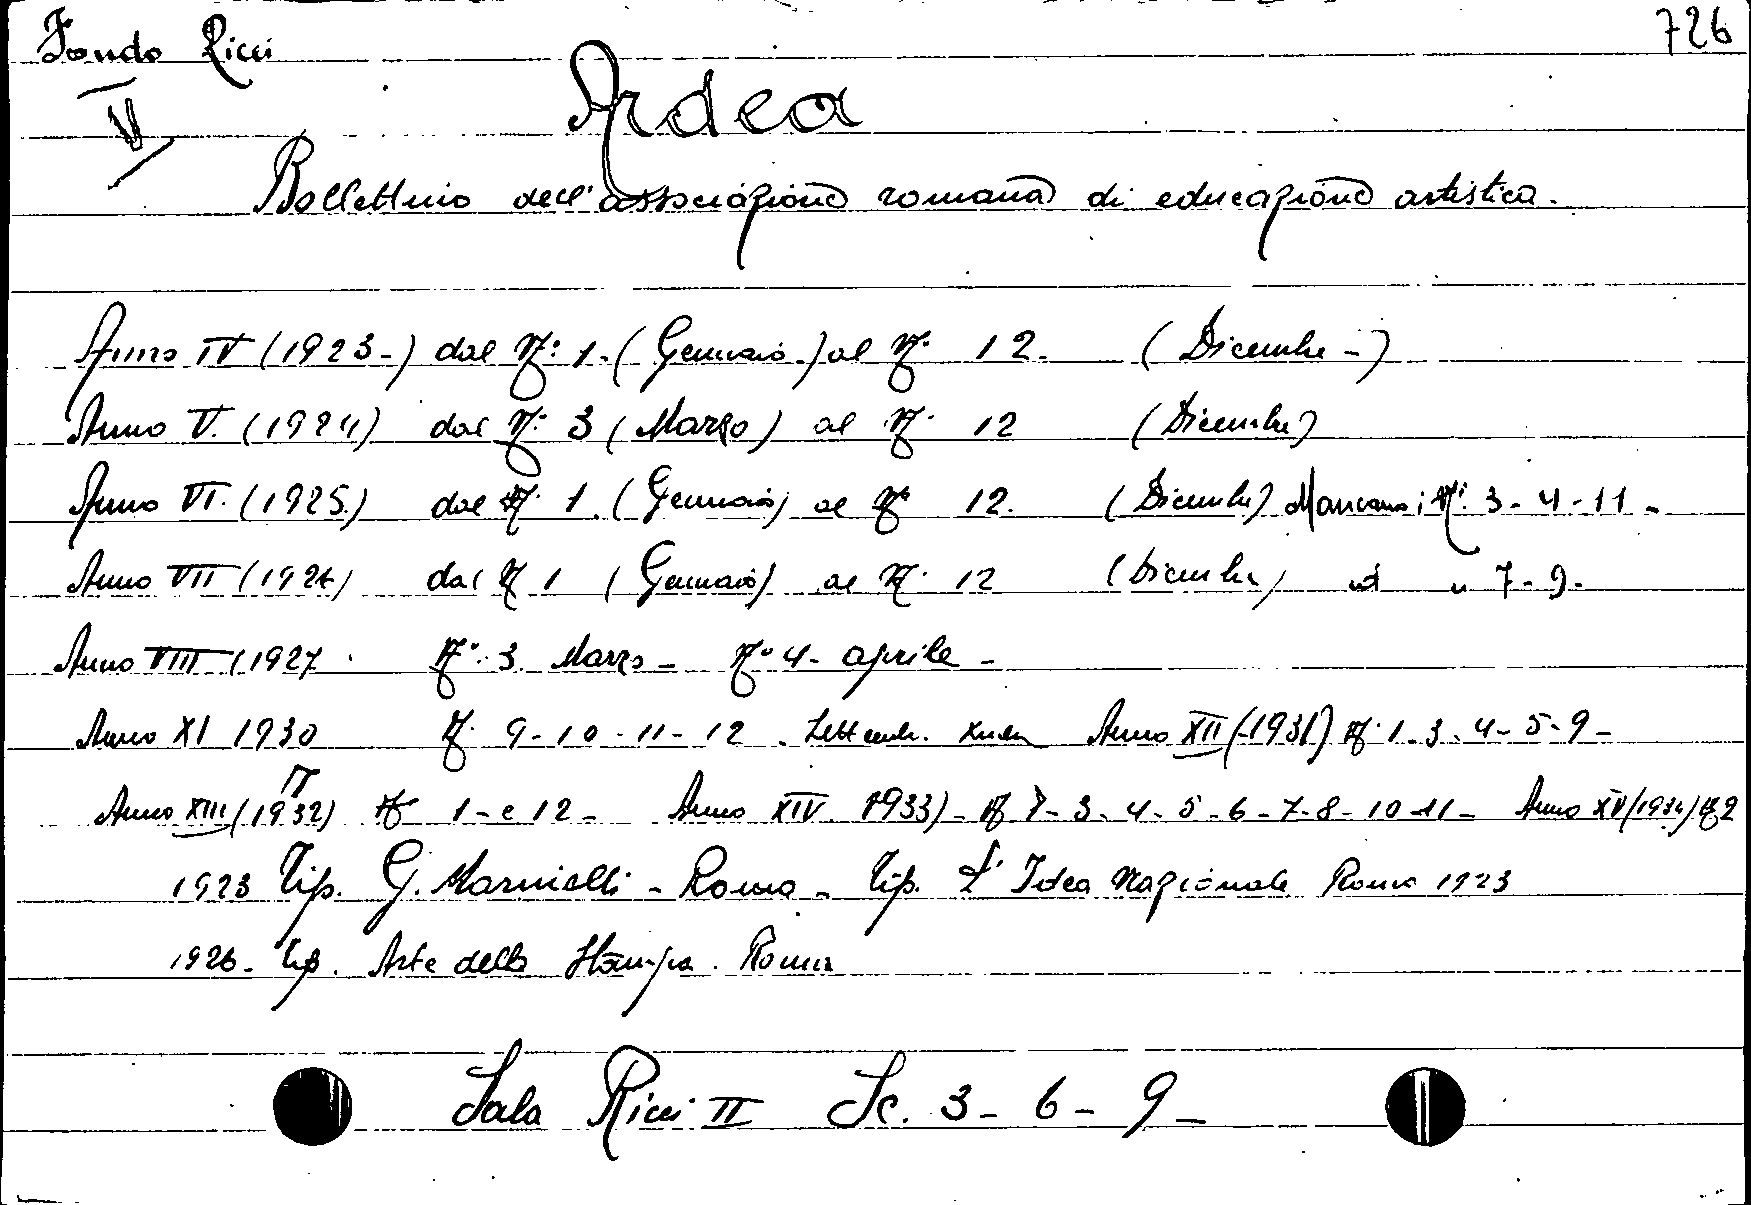 Fondo Ricci 726
V
Ardea
Bollettino dell'associazione romana di educazione artistica.
Anno IV (1923-) dal N° 1-(Gennaio-) al N° 12- (Dicembre-)
Anno V. (1924) dal N° 3 (Marzo) al N° 12 (Dicembre)
Anno VI. (1925.) dal N° 1 (Gennaio) al N° 12. (Dicembre) Mancano i N° 3-4-11-
Anno VII (1926) dal N 1 (Gennaio) al N° 12 (Dicembre) id " 7-9-
Anno VIII (1927 N° 3 Marzo- N° 4- aprile-
Anno XI 1930 N. 9-10-11-12 Anno XII (1931) N° 1-3-4-5-9-
Anno XIII (1932) N° 1-e 12- Anno XIV 1933)- N 1-3-4-5-6-7-8-10-11- Anno XV (1934) N° 2
1923 Tip. G. - Roma - Tip. L'Idea Nazionale Roma 1923
1926- Tip. Arte della Stampa. Roma
Sala Ricci II Sc. 3-6-9-